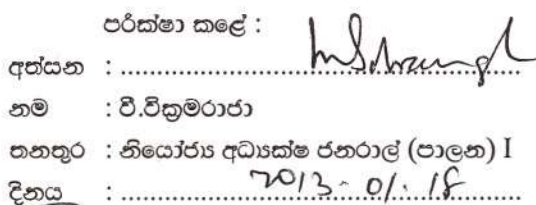 පරීක්ෂා කළේ :
අත්සන : ....................................................
නම : වී.වික්‍රමරාජා
තනතුර : නියෝජ්‍ය අධ්‍යක්ෂ ජනරාල් (පාලන) I
දිනය : ........2013.01.18........